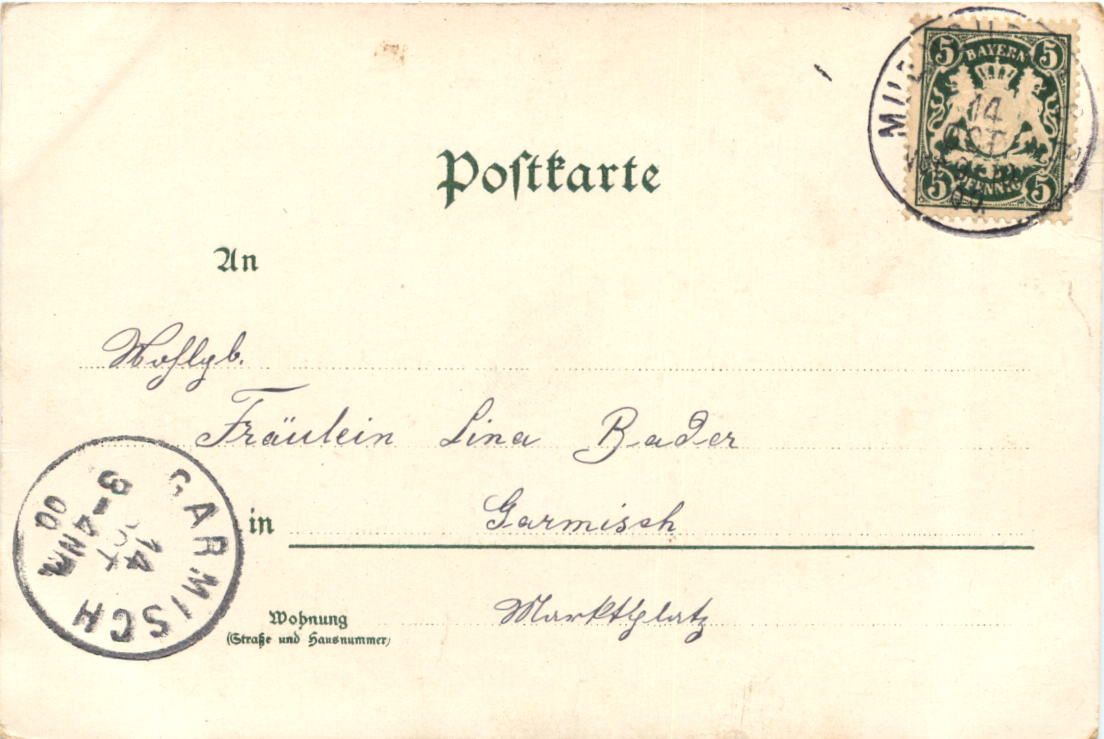 5 BAYERN 5
5 PFENNIG 5
14
OCT
Postkarte
An
Wohlgb.
Fräulein Lina Bader
in Garmisch
GARMISCH
3-4NM
14
OCT
00
Wohnung
(Straße und Hausnummer)
Marktplatz